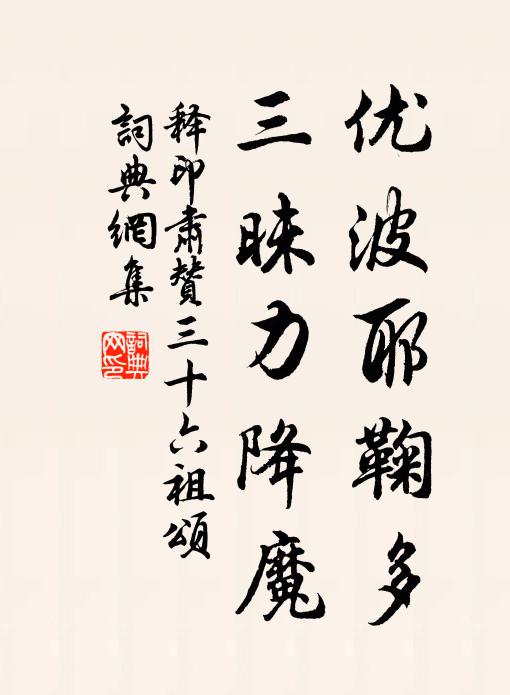 优波耶鞠多
三昧力降魔
释印肃赞三十六祖頌
詞典網集
詞典网印